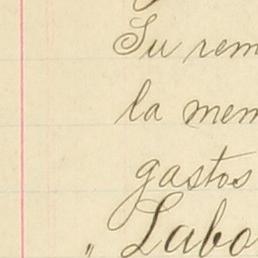 Su rem
la mem
gastos
" Labo